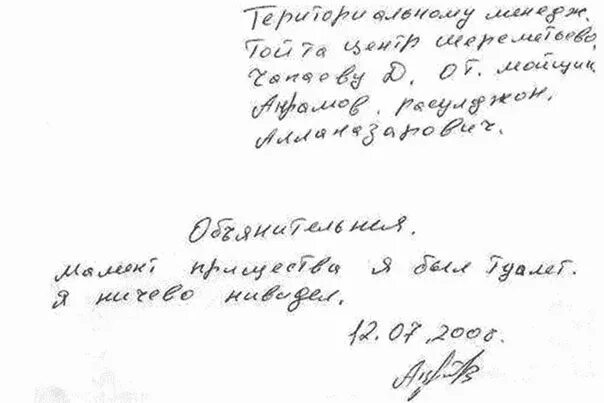 Териториальному менедж.
Тойта центр шереметьево,
Чапаеву Д. от. мойщик
Ахрамов. расулджон.
Аллапазарович.
Объянительния.
мамент прищества я был туалет.
я ничево нивидел.
12.07.2006.